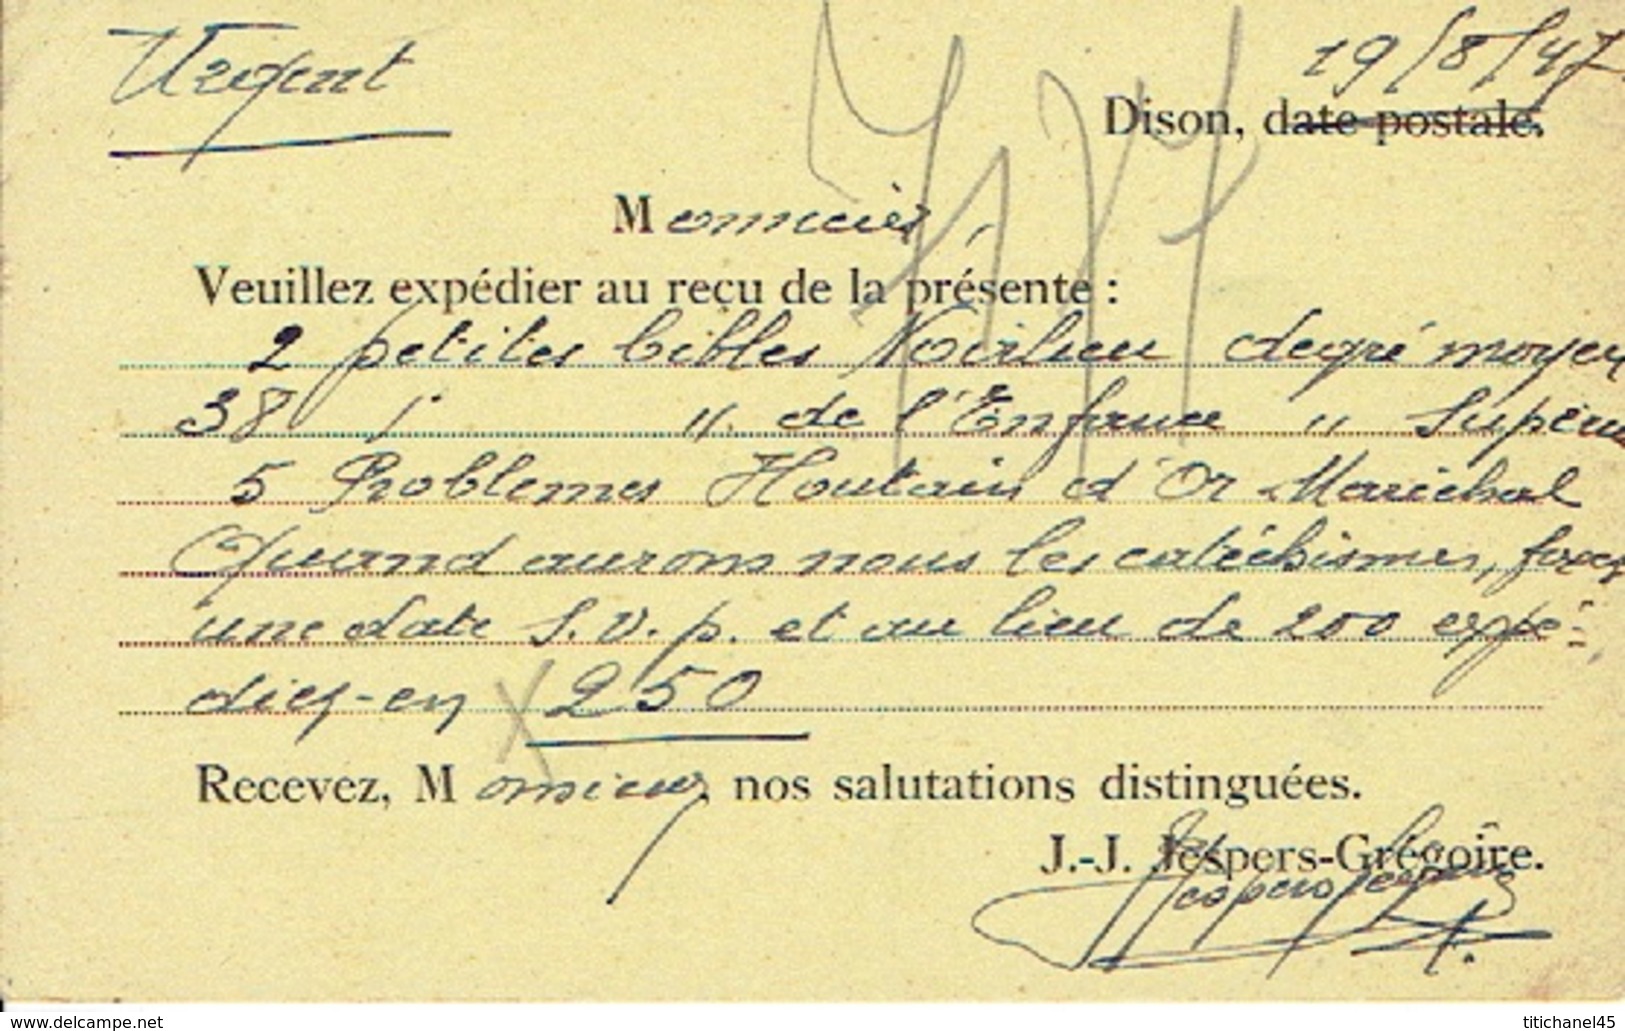 Urgent
19/8/47
Dison, date postale.
Monsieur,
Veuillez expédier au reçu de la présente :
2 petites bibles Noirlieu degré moyen
38 " " de l'Enfance " Supérieur
5 Problèmes Houtain d'Or Maréchal
Quand aurons nous les catéchismes, fixez
une date S.V.p. et au lieu de 200 expé-
diez-en 250
Recevez, Monsieur, nos salutations distinguées.
J.-J. Jespers-Grégoire.
Jespers Grégoire
www.delcampe.net
titichanel45